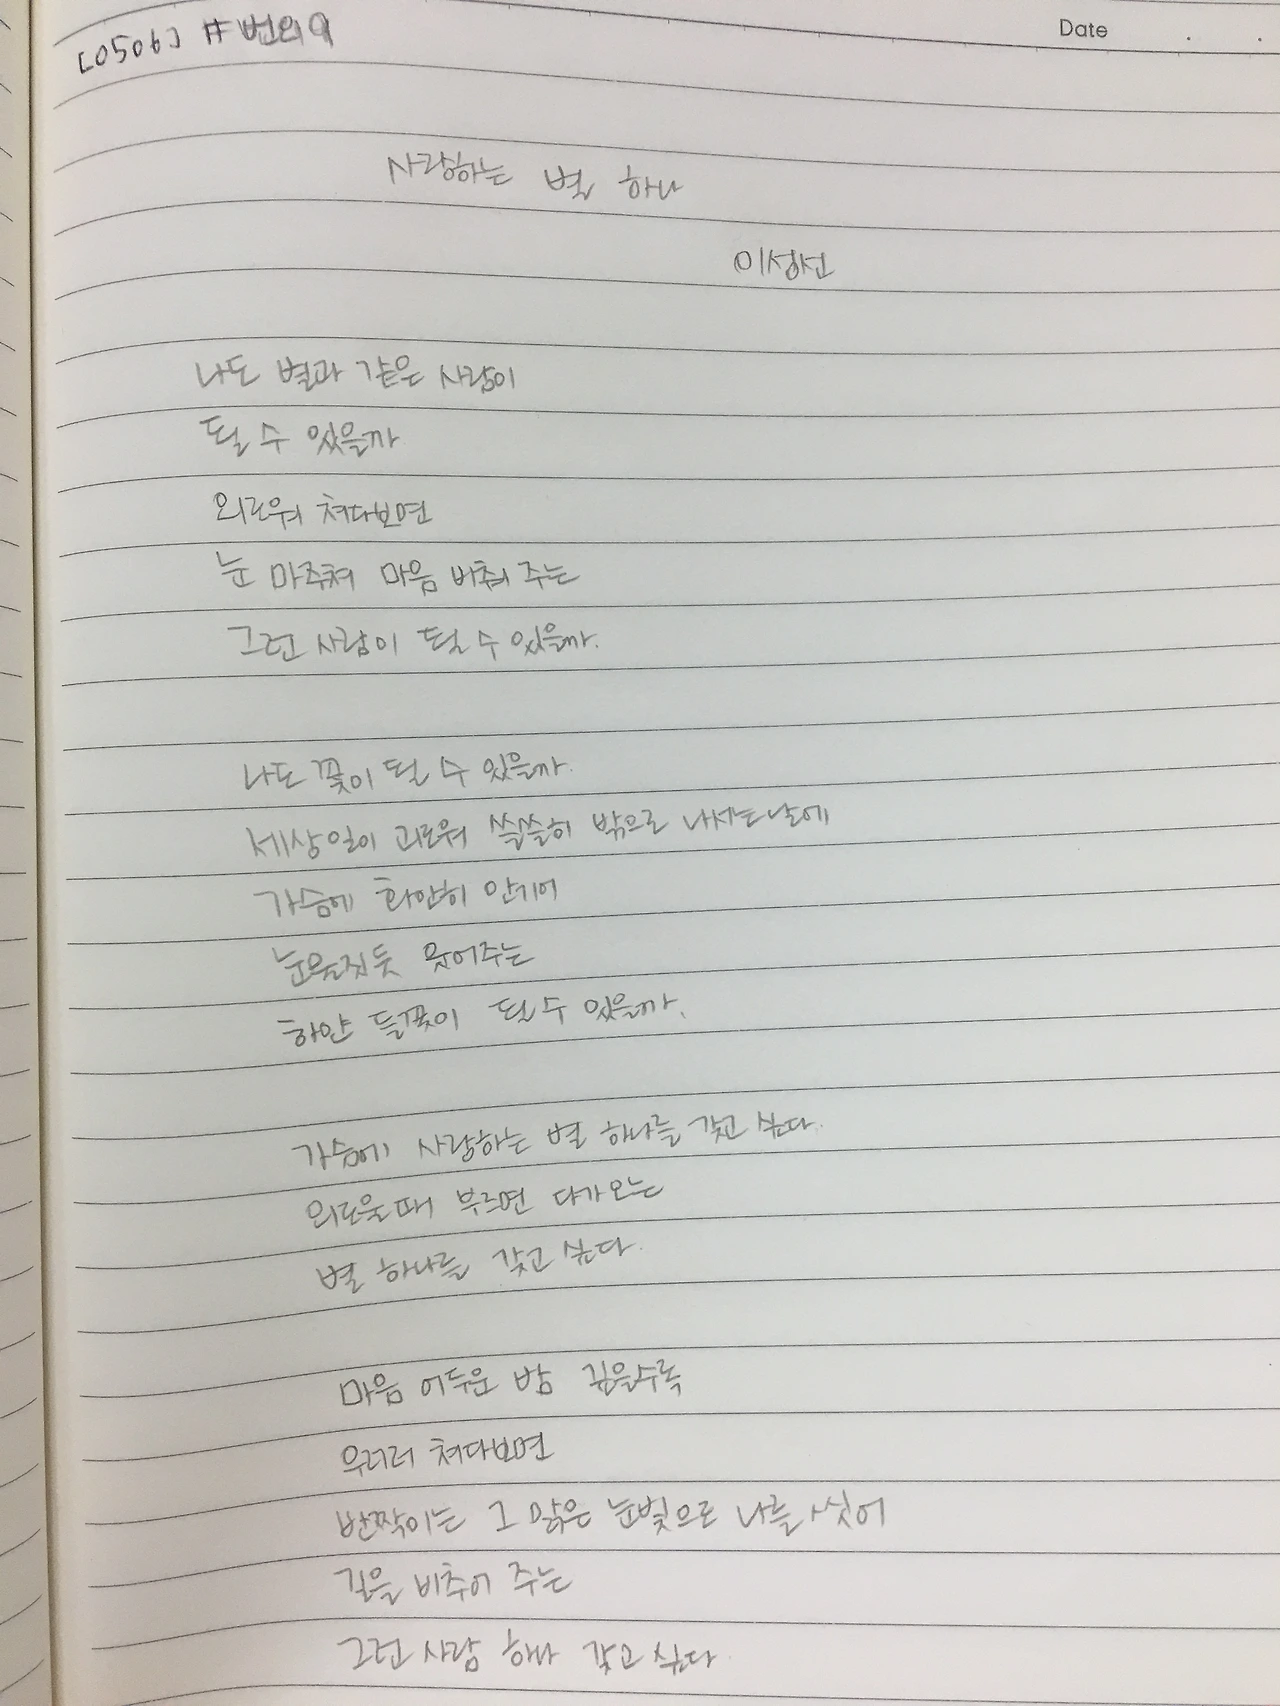 [0506] #번외9
Date . .
사랑하는 별 하나
이성선
나도 별과 같은 사람이
될 수 있을까
외로워 쳐다보면
눈 마주쳐 마음 비춰 주는
그런 사람이 될 수 있을까.
나도 꽃이 될 수 있을까.
세상일이 괴로워 쓸쓸히 밖으로 나서는날에
가슴에 화안히 안기어
눈물짓듯 웃어주는
하얀 들꽃이 될 수 있을까.
가슴에 사랑하는 별 하나를 갖고 싶다.
외로울때 부르면 다가오는
별 하나를 갖고 싶다.
마음 어두운 밤 깊을수록
우러러 쳐다보면
반짝이는 그 맑은 눈빛으로 나를 씻어
길을 비추어 주는
그런 사람 하나 갖고 싶다